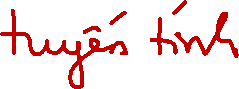 tuyến tính